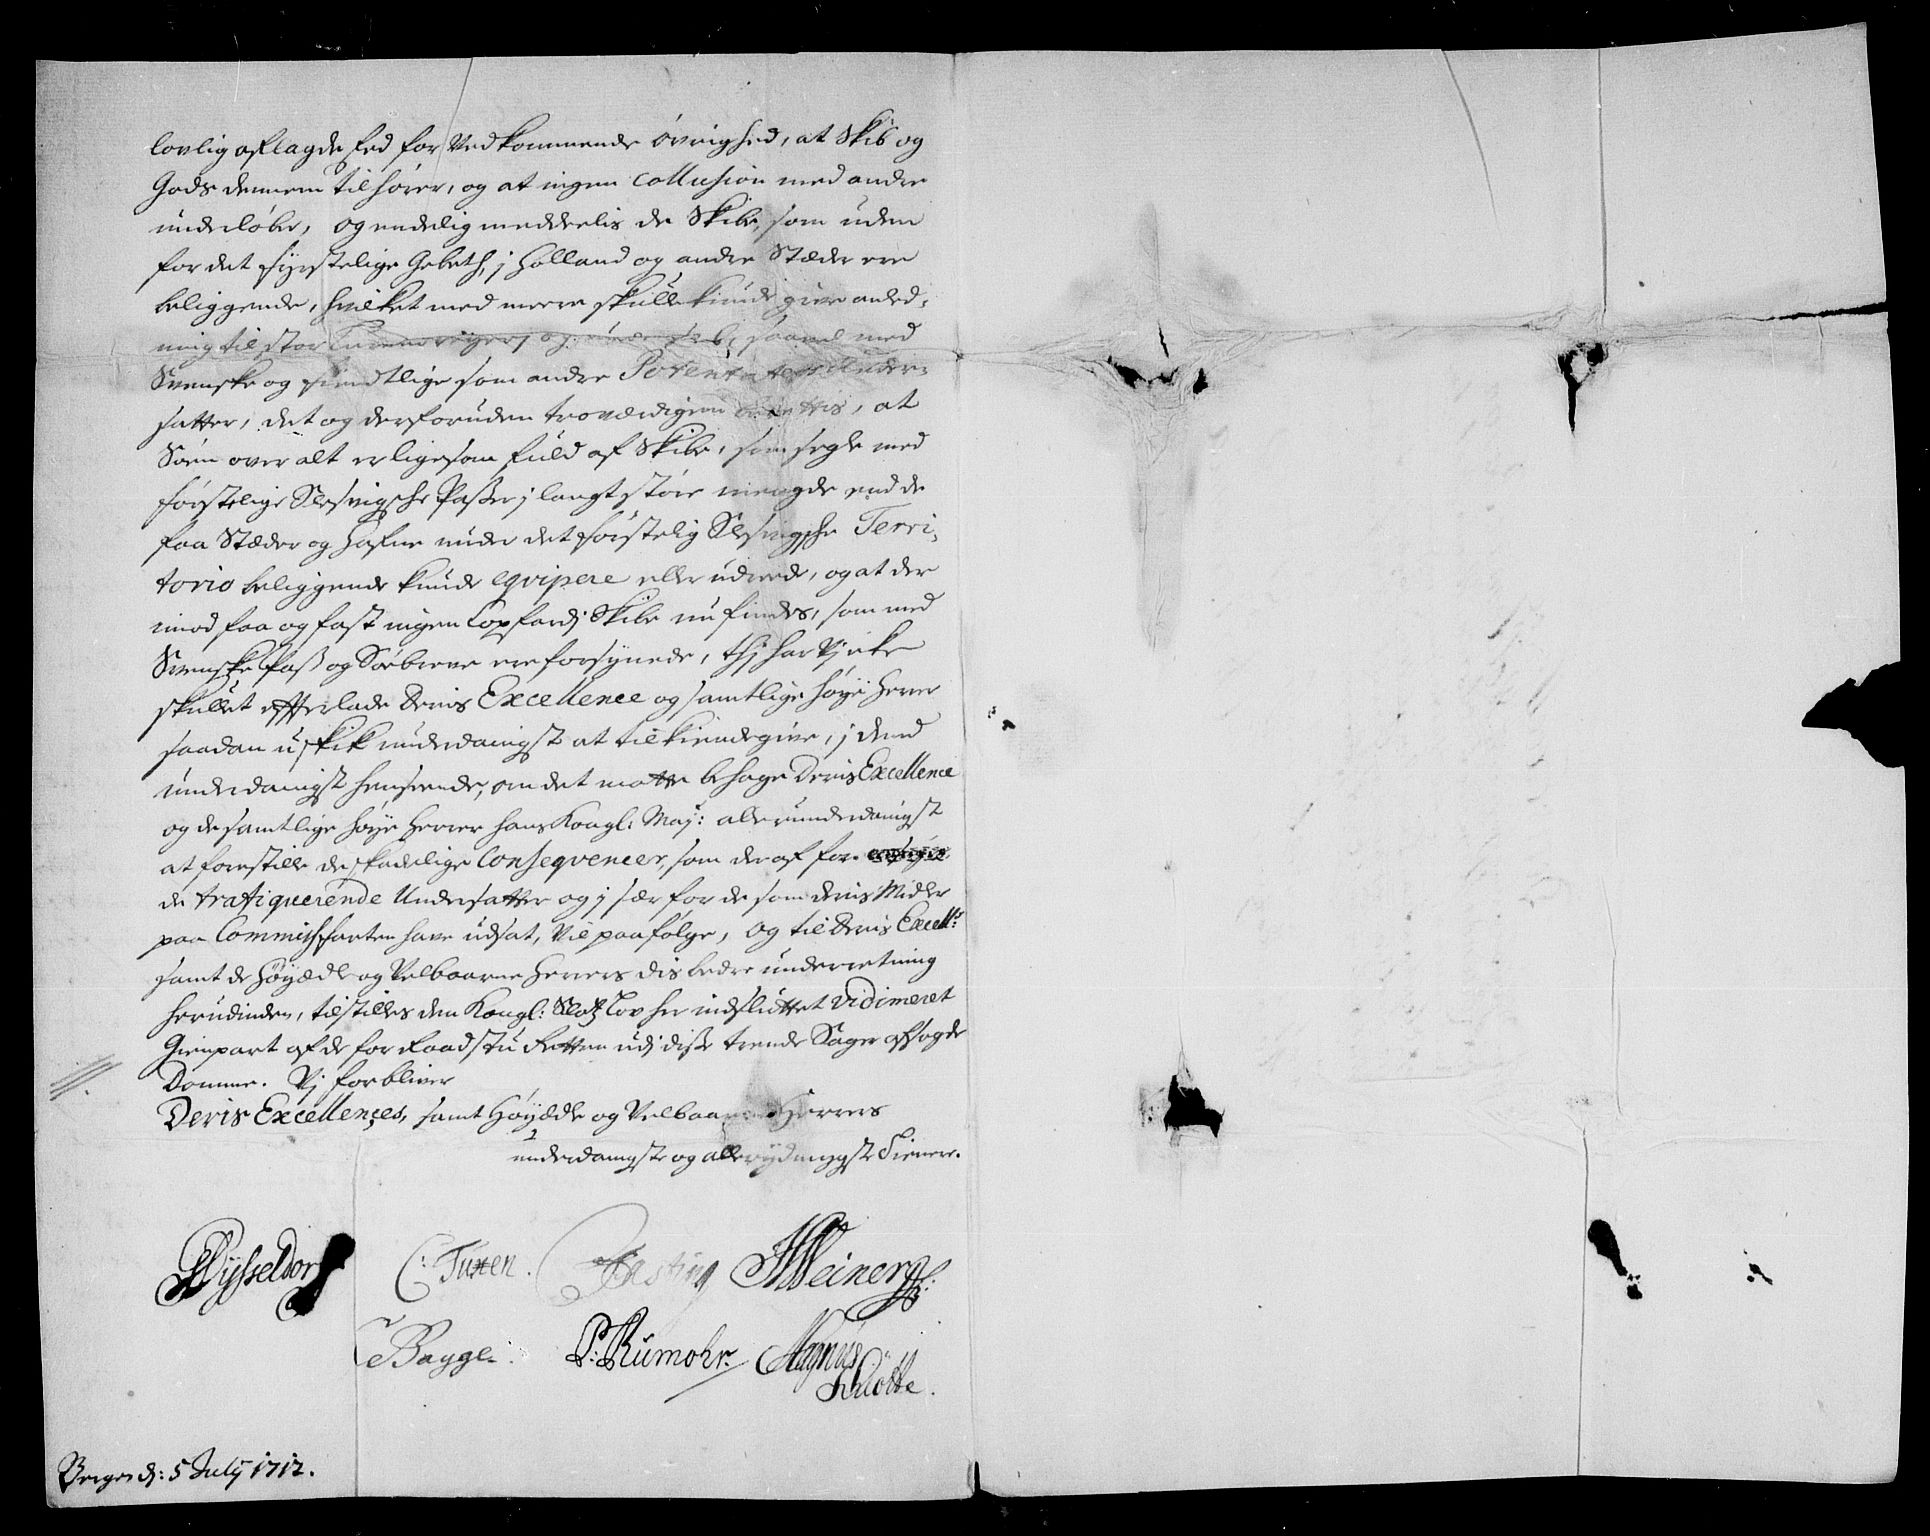 lovlig aflagde Eed for Vedkommende Øvrighed, at Skib og
Gods dennem tilhører, og at ingen Collusion med andre
underløber, og endelig meddeelis de Skibe, som uden
for det fyrstelige Gebeth, j Holland og andre Stæder ere
beliggende, hvilket med meere skulle kunde give anled-
ning til stor og saavel med
Svenske og fiendtlige som andre Potentaters Under-
satter, det og derforuden troværdigen berettis, at
Søen over alt er ligesom fuld af Skibe, som segle med
førstelige Slesvigsche Passer j langt støre mengde end de
faa Stæder og Hafne under det førstelig Slesvigsche Terri-
torio beliggende kunde eqvipere eller udreede, og at der
imod faa og fast ingen Copfardj Skibe nu findes, som med
Svenske Pass og Søebreve ere forsynede, thj har Vj icke
skullet efterlade Deris Excellence og samtlige høye Herrer
saadan uskik underdanigst at tilkiendegive, j dend
underdanigst henseende, om det motte behage Deris Excellence
og de samtlige høye Herrer hans Kongl: Maj: allerunderdanigst
at forestille de skadelige Conseqvencer, som deraf for
de trafiquerende Undersatter og j sær for de som deris Midler
paa Commissfarten have udsat, vil paafølge, og til Deris Excell:
samt de Høyædle og Velbaarne Herrers dis bedre underretning
herudinden, tilstilles den Kongl: Slotz Lov her indsluttet vidimeret
Gienpart af de for Raadstu Retten udj disse trende Sager afsagde
Domme. Vj forbliver
Deris Excellences, samt Høyædle og Velbaarne Herrers
underdanigste og allerydmygste Tienere.
Dysseldorf C: Tuxen. Fasting Weiner
Bagge. P: Rumohr. Magnus
Kiøtte.
Bergen d: 5 July 1712.